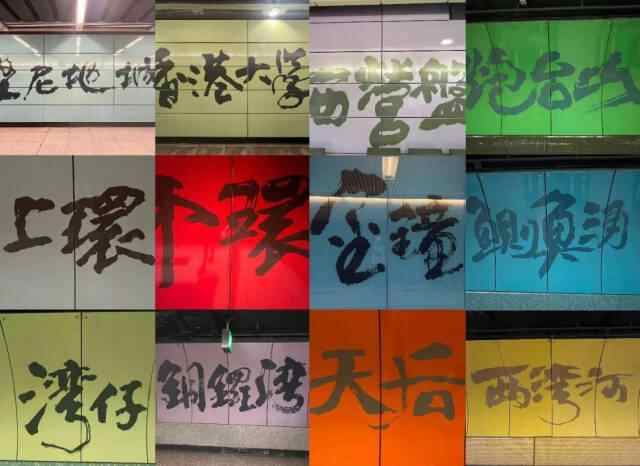 堅尼地城
香港大學
西營盤
炮台山
上環
中環
金鐘
鰂魚涌
灣仔
銅鑼灣
天后
西灣河